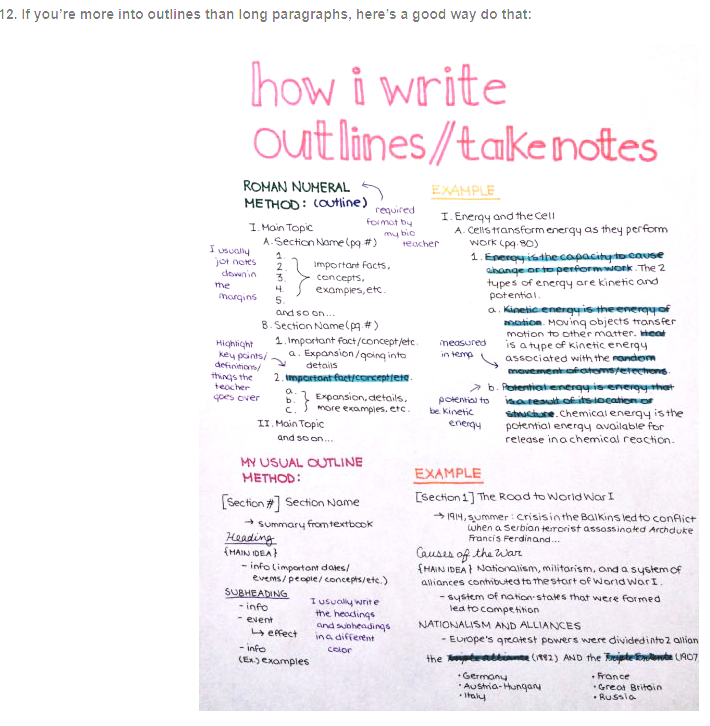 12. If you're more into outlines than long paragraphs, here's a good way do that:
how i write
outlines//take notes
ROMAN NUMERAL
METHOD: (outline)
required
format by
my bio
teacher
I. Main Topic
A. Section Name (pg.#)
I usually
jot notes
down in
the
margins
1.
2.
3.
4.
5.
important facts,
concepts,
examples, etc.
and so on...
B. Section Name (pg.#)
1. Important fact/concept/etc.
a. Expansion/going into
details
Highlight
key points/
definitions/
things the
teacher
goes over
2. important fact/concept/etc.
a.
b.
c.
Expansion, details,
more examples, etc.
II. Main Topic
and so on...
EXAMPLE
I. Energy and the Cell
A. Cells transform energy as they perform
work (pg. 80)
1. Energy is the capacity to cause
change or to perform work. The 2
types of energy are kinetic and
potential.
a. Kinetic energy is the energy of
motion. Moving objects transfer
motion to other matter. Heat
is a type of kinetic energy
associated with the random
movement of atoms/electrons.
measured
in temp
b. Potential energy is energy that
is a result of its location or
structure. Chemical energy is the
potential energy available for
release in a chemical reaction.
potential to
be kinetic
energy
MY USUAL OUTLINE
METHOD:
[Section #] Section Name
→ summary from textbook
Heading
{MAIN IDEA}
- info (important dates/
events/people/concepts/etc.)
SUBHEADING
- info
- event
↳ effect
- info
(Ex.) examples
I usually write
the headings
and subheadings
in a different
color
EXAMPLE
[Section 1] The Road to World War I
→ 1914, summer: crisis in the Balkins led to conflict
when a Serbian terrorist assassinated Archduke
Francis Ferdinand...
Causes of the War
{MAIN IDEA} Nationalism, militarism, and a system of
alliances contributed to the start of World War I.
- system of nation-states that were formed
led to competition
NATIONALISM AND ALLIANCES
- Europe's greatest powers were divided into 2 allian
the Triple Alliance (1882) AND the Triple Entente (1907
• Germany
• Austria-Hungary
• Italy
• France
• Great Britain
• Russia